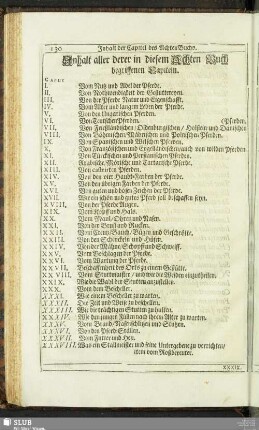 130 Inhalt der Capitel des Achten Buchs.
Inhalt aller derer in diesem Achten Buch
begriffenen Capiteln.
CAPUT
I. Vom Nutz und Adel der Pferde.
II. Von Nothwendigkeit der
III. Von der Pferde Natur und Eigenschafft.
IV. Vom Alter und langem Leben der Pferde.
V. Von den Ungarischen Pferden.
VI. Von Teutschen Pferden. (Pferden.
VII. Von Frießländischen / Oldenburgischen / Holstein und Dänischen
VIII. Von Böhmischen Mährischen und Polnischen Pferden.
IX. Von Spanischen und Welschen Pferden.
X. Von Frantzösischen und Engeländischen auch von wilden Pferden.
XI. Von Türckischen und Persianischen Pferden.
XII. Arabische, Mörische und Tartarische Pferde.
XIII. Von Pferden.
XIV. Von den vier Haubt-Farben der Pferde.
XV. Von den übrigen Farben der Pferde.
XVI. Von guten und bösen Zeichen der Pferde.
XVII. Wie ein schön und gutes Pferd soll beschaffen seyn.
XVIII. Von der Pferde Augen.
XIX. Vom Kopff und Hals.
XX. Vom Maul / Ohren und Nasen.
XXI. Von der Brust und Rucken.
XXII. Vom Creutz / Bauch /
XXIII. Von den Schenckeln und Hüfen.
XXIV. Von der Mähne, Schopff und Schweiff.
XXV. Vom Beschlagen der Pferde.
XXVI. Vom Wartung der Pferde.
XXVII. Beschaffenheit des Orts zu einem Gestütte.
XXVIII. Vom Stuttmeister / und wie die Weiden einzutheilen.
XXIX. Wie die Wahl der Stutten anzustellen.
XXX. Von dem Bescheller.
XXXI. Wie einem Bescheller zu warten.
XXXII. Die Zeit und Weis zu beschellen.
XXXIII. Wie die trächtigen Stutten zu halten.
XXXIV. Wie der jungen Füllen nach ihrem Alter zu warten.
XXXV. Vom Brand / Maalschlitzen und Stutzen.
XXXVI. Von der Pferd Ställen.
XXXVII. Vom Futter und Heu.
XXXVIII. Was ein Stallmeister und seine Untergebene zu verrichten /
item vom Roßbereuter.
XXXIX.
SLUB